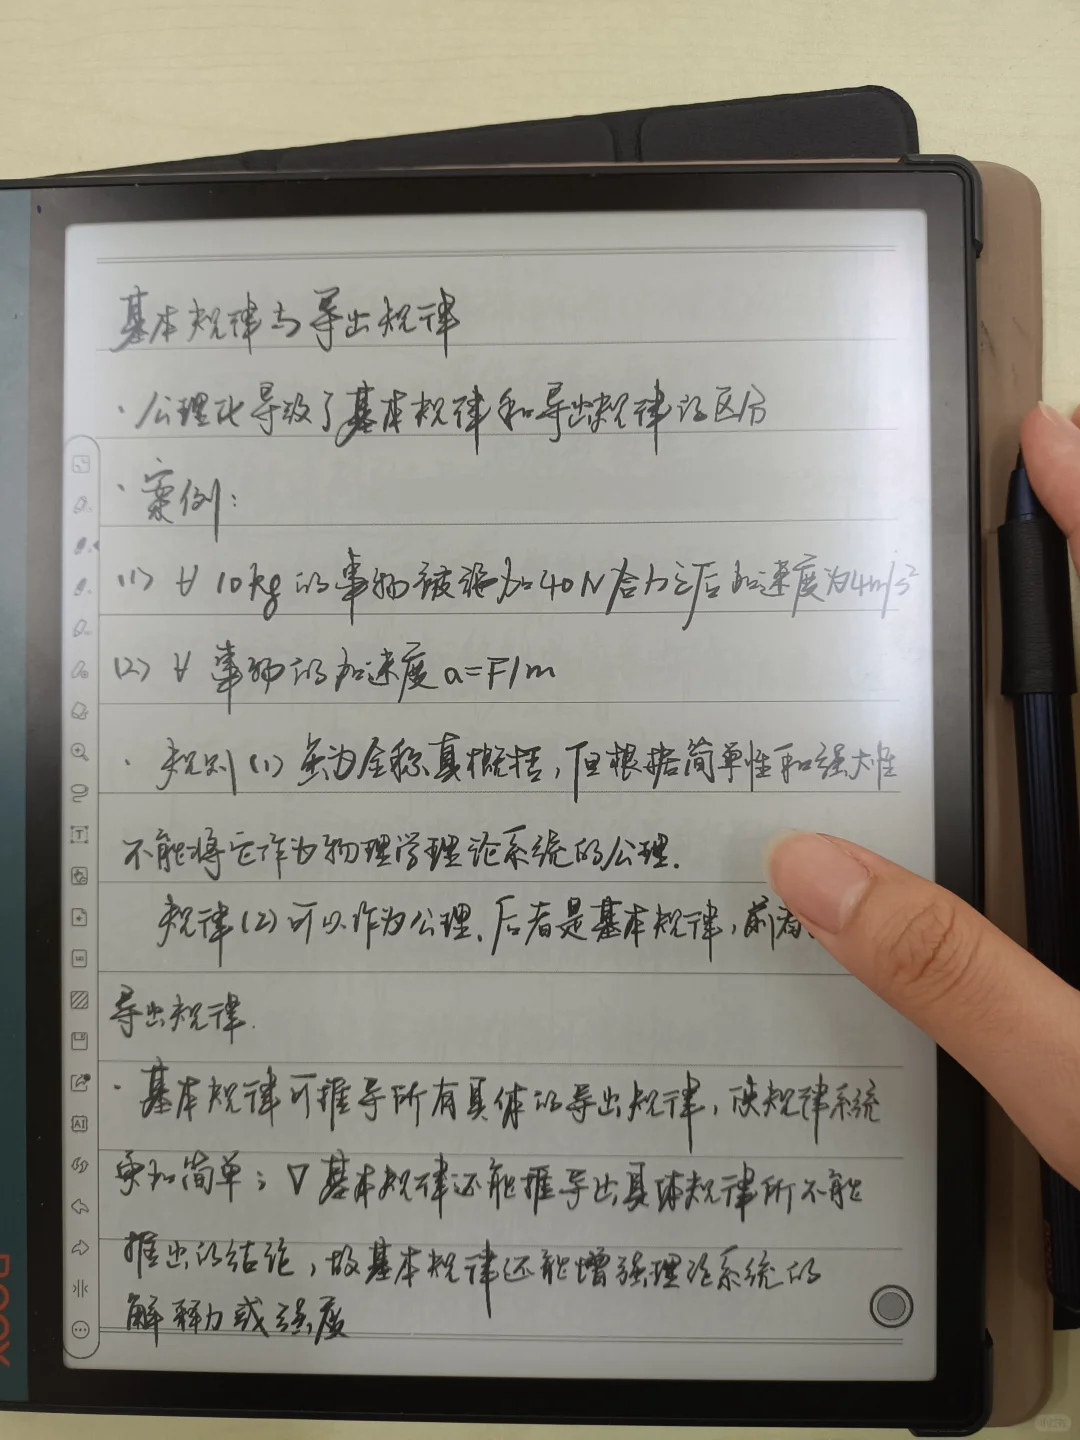 基本规律与导出规律
· 公理化导致了基本规律和导出规律的区分
· 案例:
(1) ∀ 10kg的事物被施加40N合力之后加速度为4m/s²
(2) ∀ 事物的加速度 a=F/m
· 规则(1)虽为全称真概括,但根据简单性和强大性
不能将它作为物理学理论系统的公理.
规律(2)可以作为公理.后者是基本规律,前者
导出规律.
· 基本规律可推导所有具体的导出规律,使规律系统
更加简单;∇基本规律还能推导出具体规律所不能
推出的结论,故基本规律还能增强理论系统的
解释力或强度
BOOX
小红书